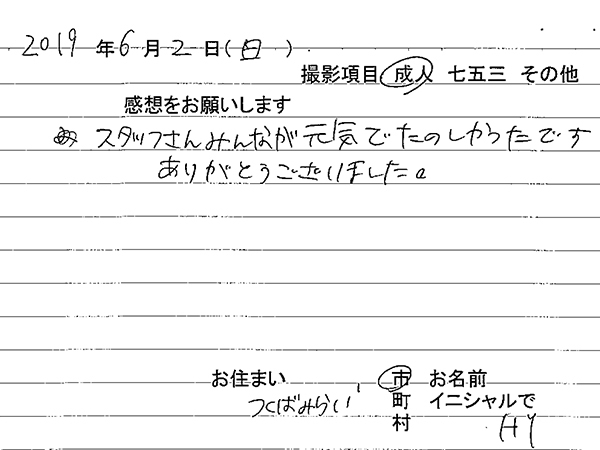 2019年6月2日(日)
撮影項目 成人 七五三 その他
感想をお願いします
スタッフさんみんなが元気でたのしかったです
ありがとうございました。
お住まい 市 お名前
つくばみらい 町 イニシャルで
村 HY